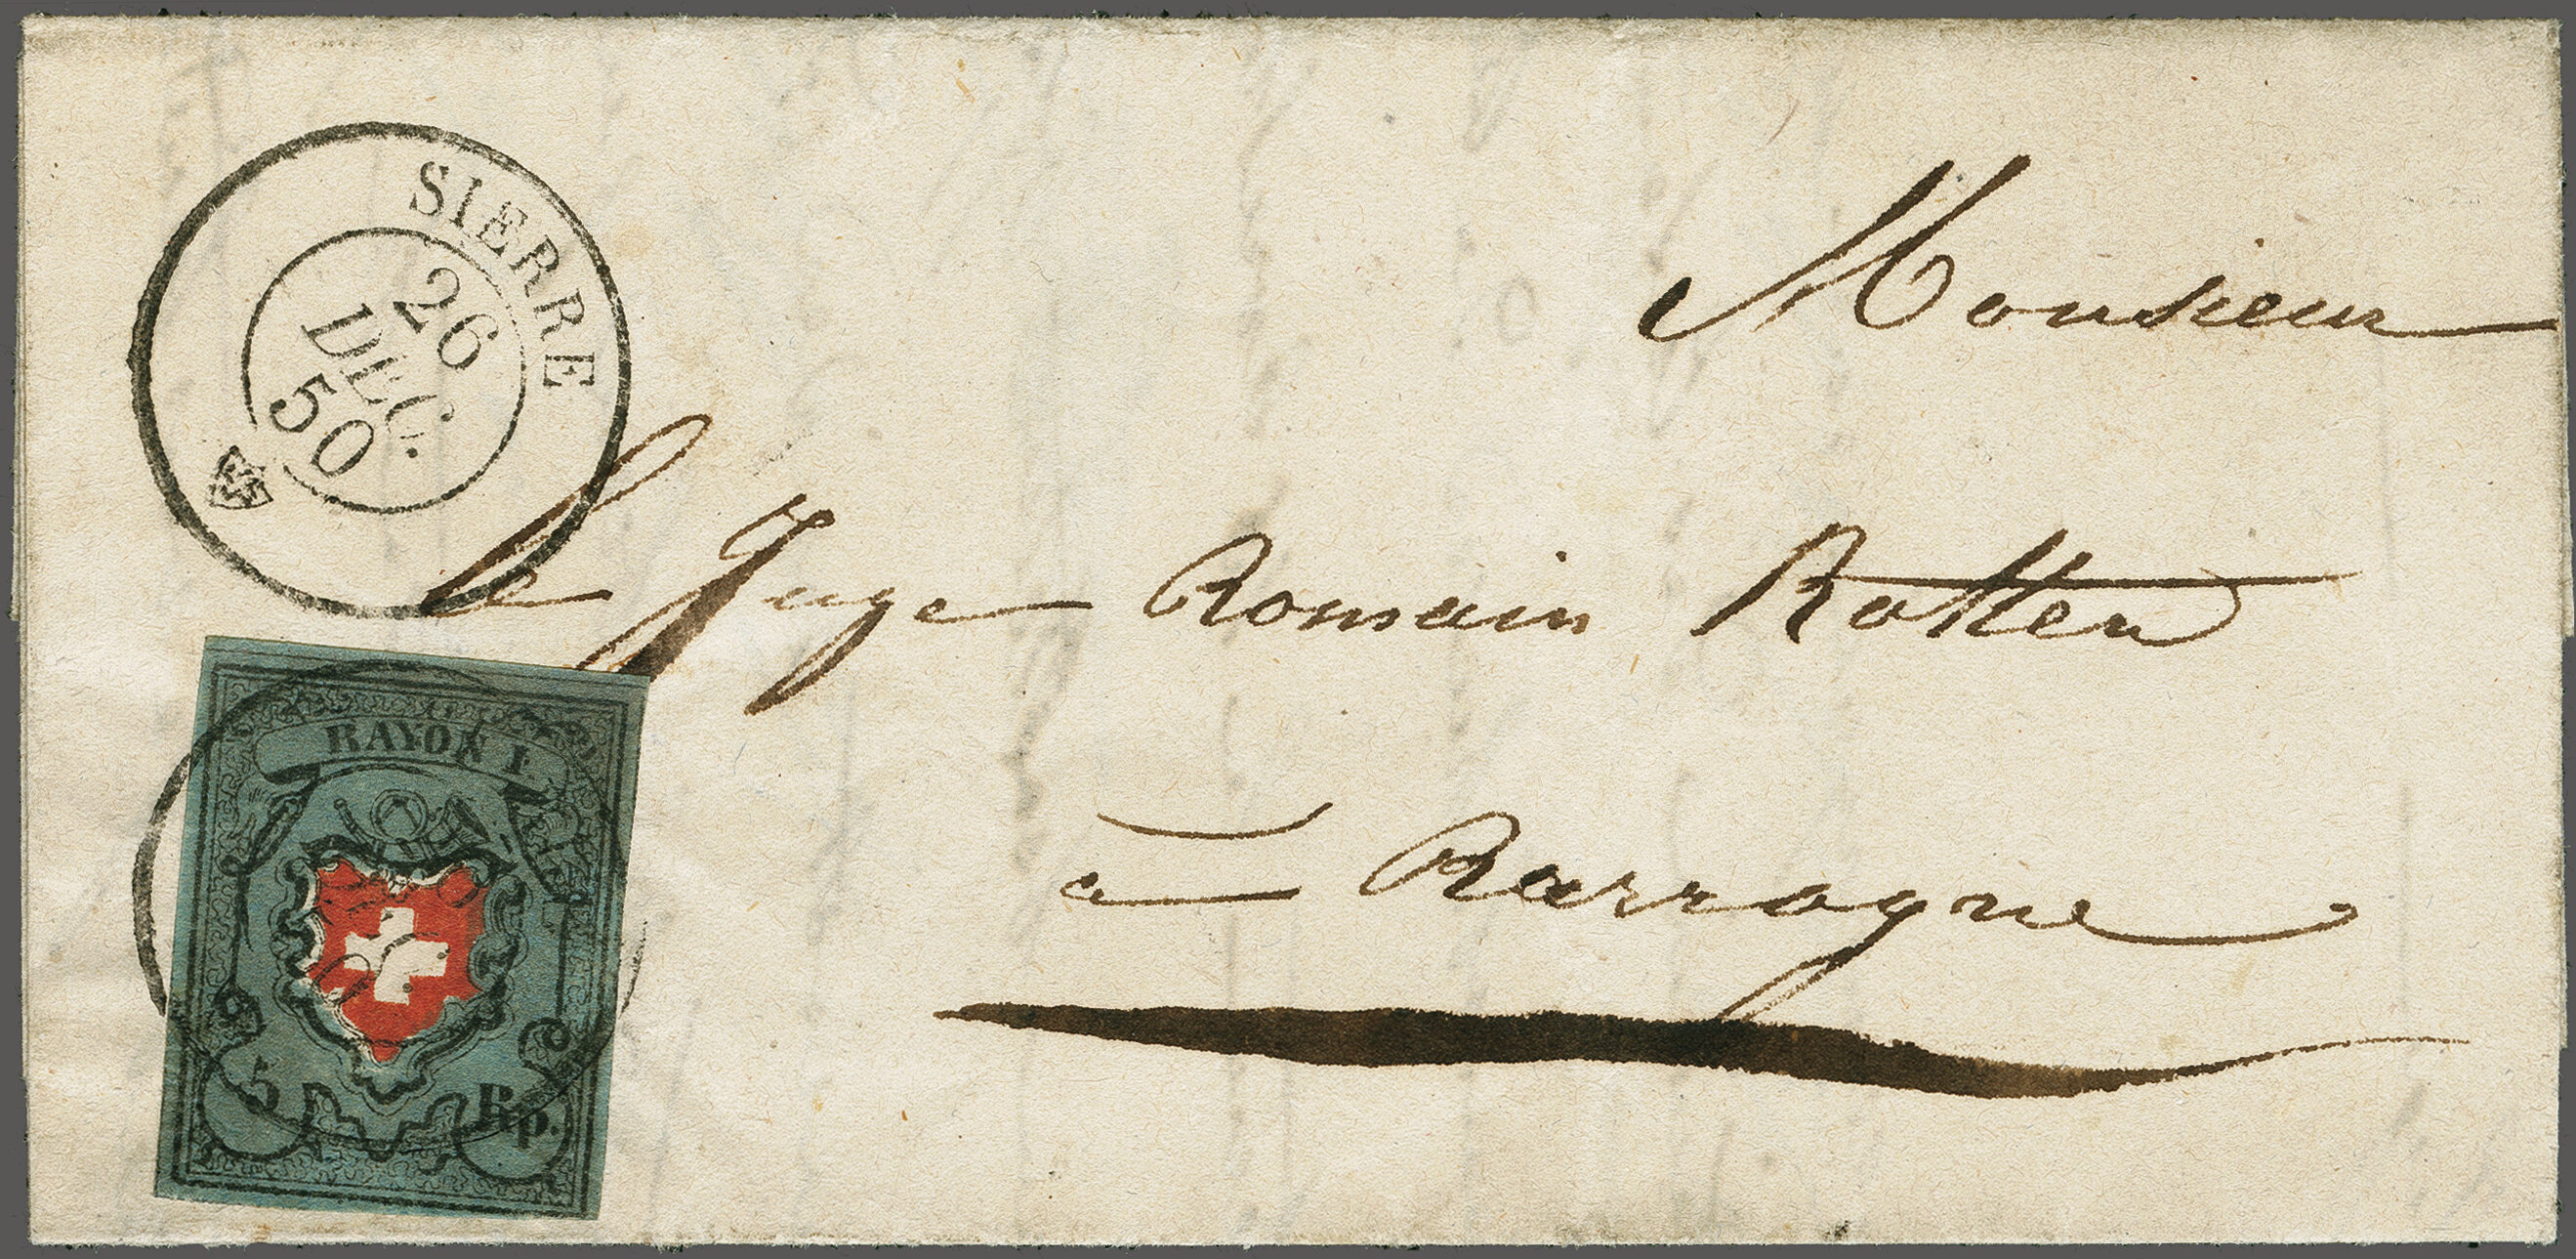 SIERRE
26
DEC.
50
Monsieur
le Juge Romain Rotten
à Rarrogne
RAYON I.
5 Rp.